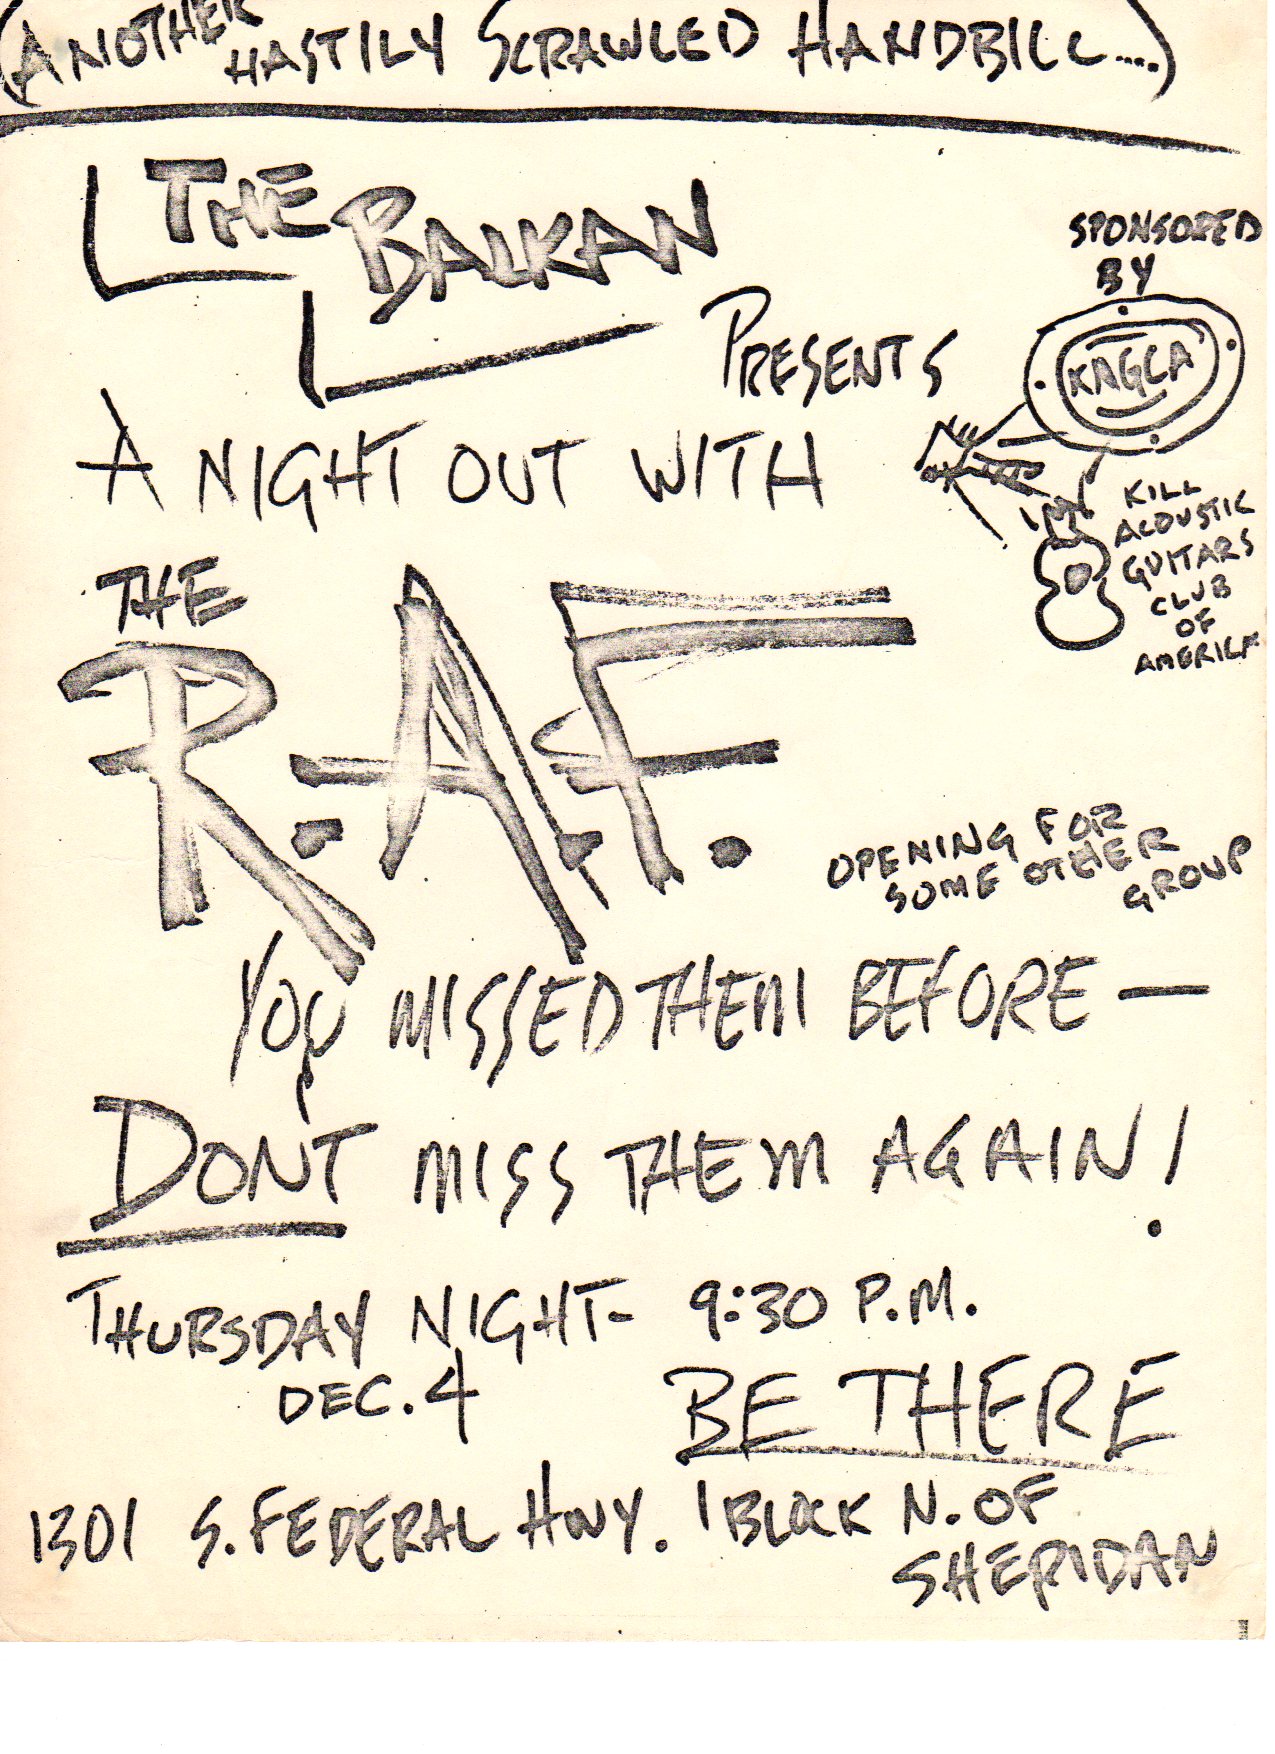 (ANOTHER HASTILY SCRAWLED HANDBILL....)
THE BALKAN
PRESENTS
SPONSORED
BY
KAGCA
KILL
ACOUSTIC
GUITARS
CLUB
OF
AMERICA
A NIGHT OUT WITH
THE
R.A.F.
OPENING FOR
SOME OTHER
GROUP
YOU MISSED THEM BEFORE —
DONT MISS THEM AGAIN!
THURSDAY NIGHT- 9:30 P.M.
DEC. 4
BE THERE
1301 S. FEDERAL HWY. 1 BLOCK N. OF
SHERIDAN